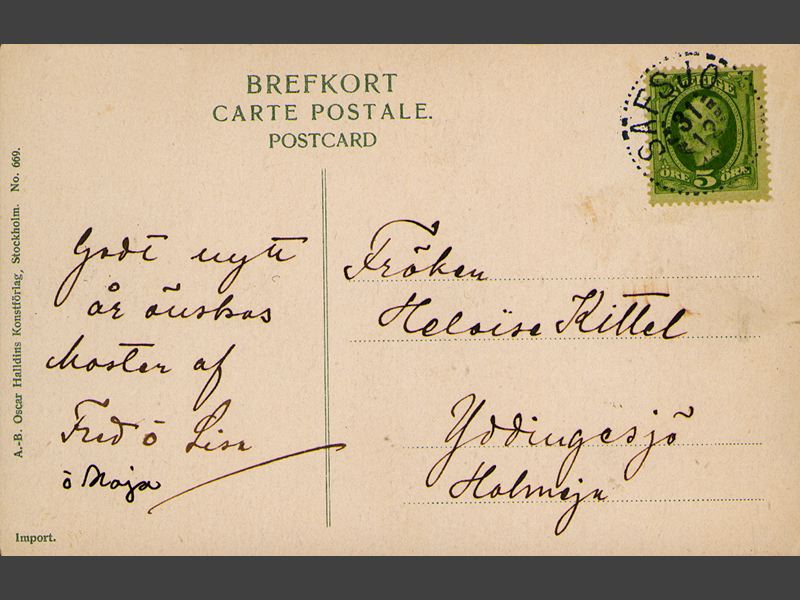 BREFKORT
CARTE POSTALE.
POSTCARD
SÄFSJÖ
31
12
5
ÖRE ÖRE
A.-B. Oscar Halldins Konstförlag, Stockholm. No. 669.
Godt nytt
år önskas
Moster af
Fred ö Lisa
ö Maja
Fröken
Heloïse Kittel
Yddingesjö
Holmeja
Import.